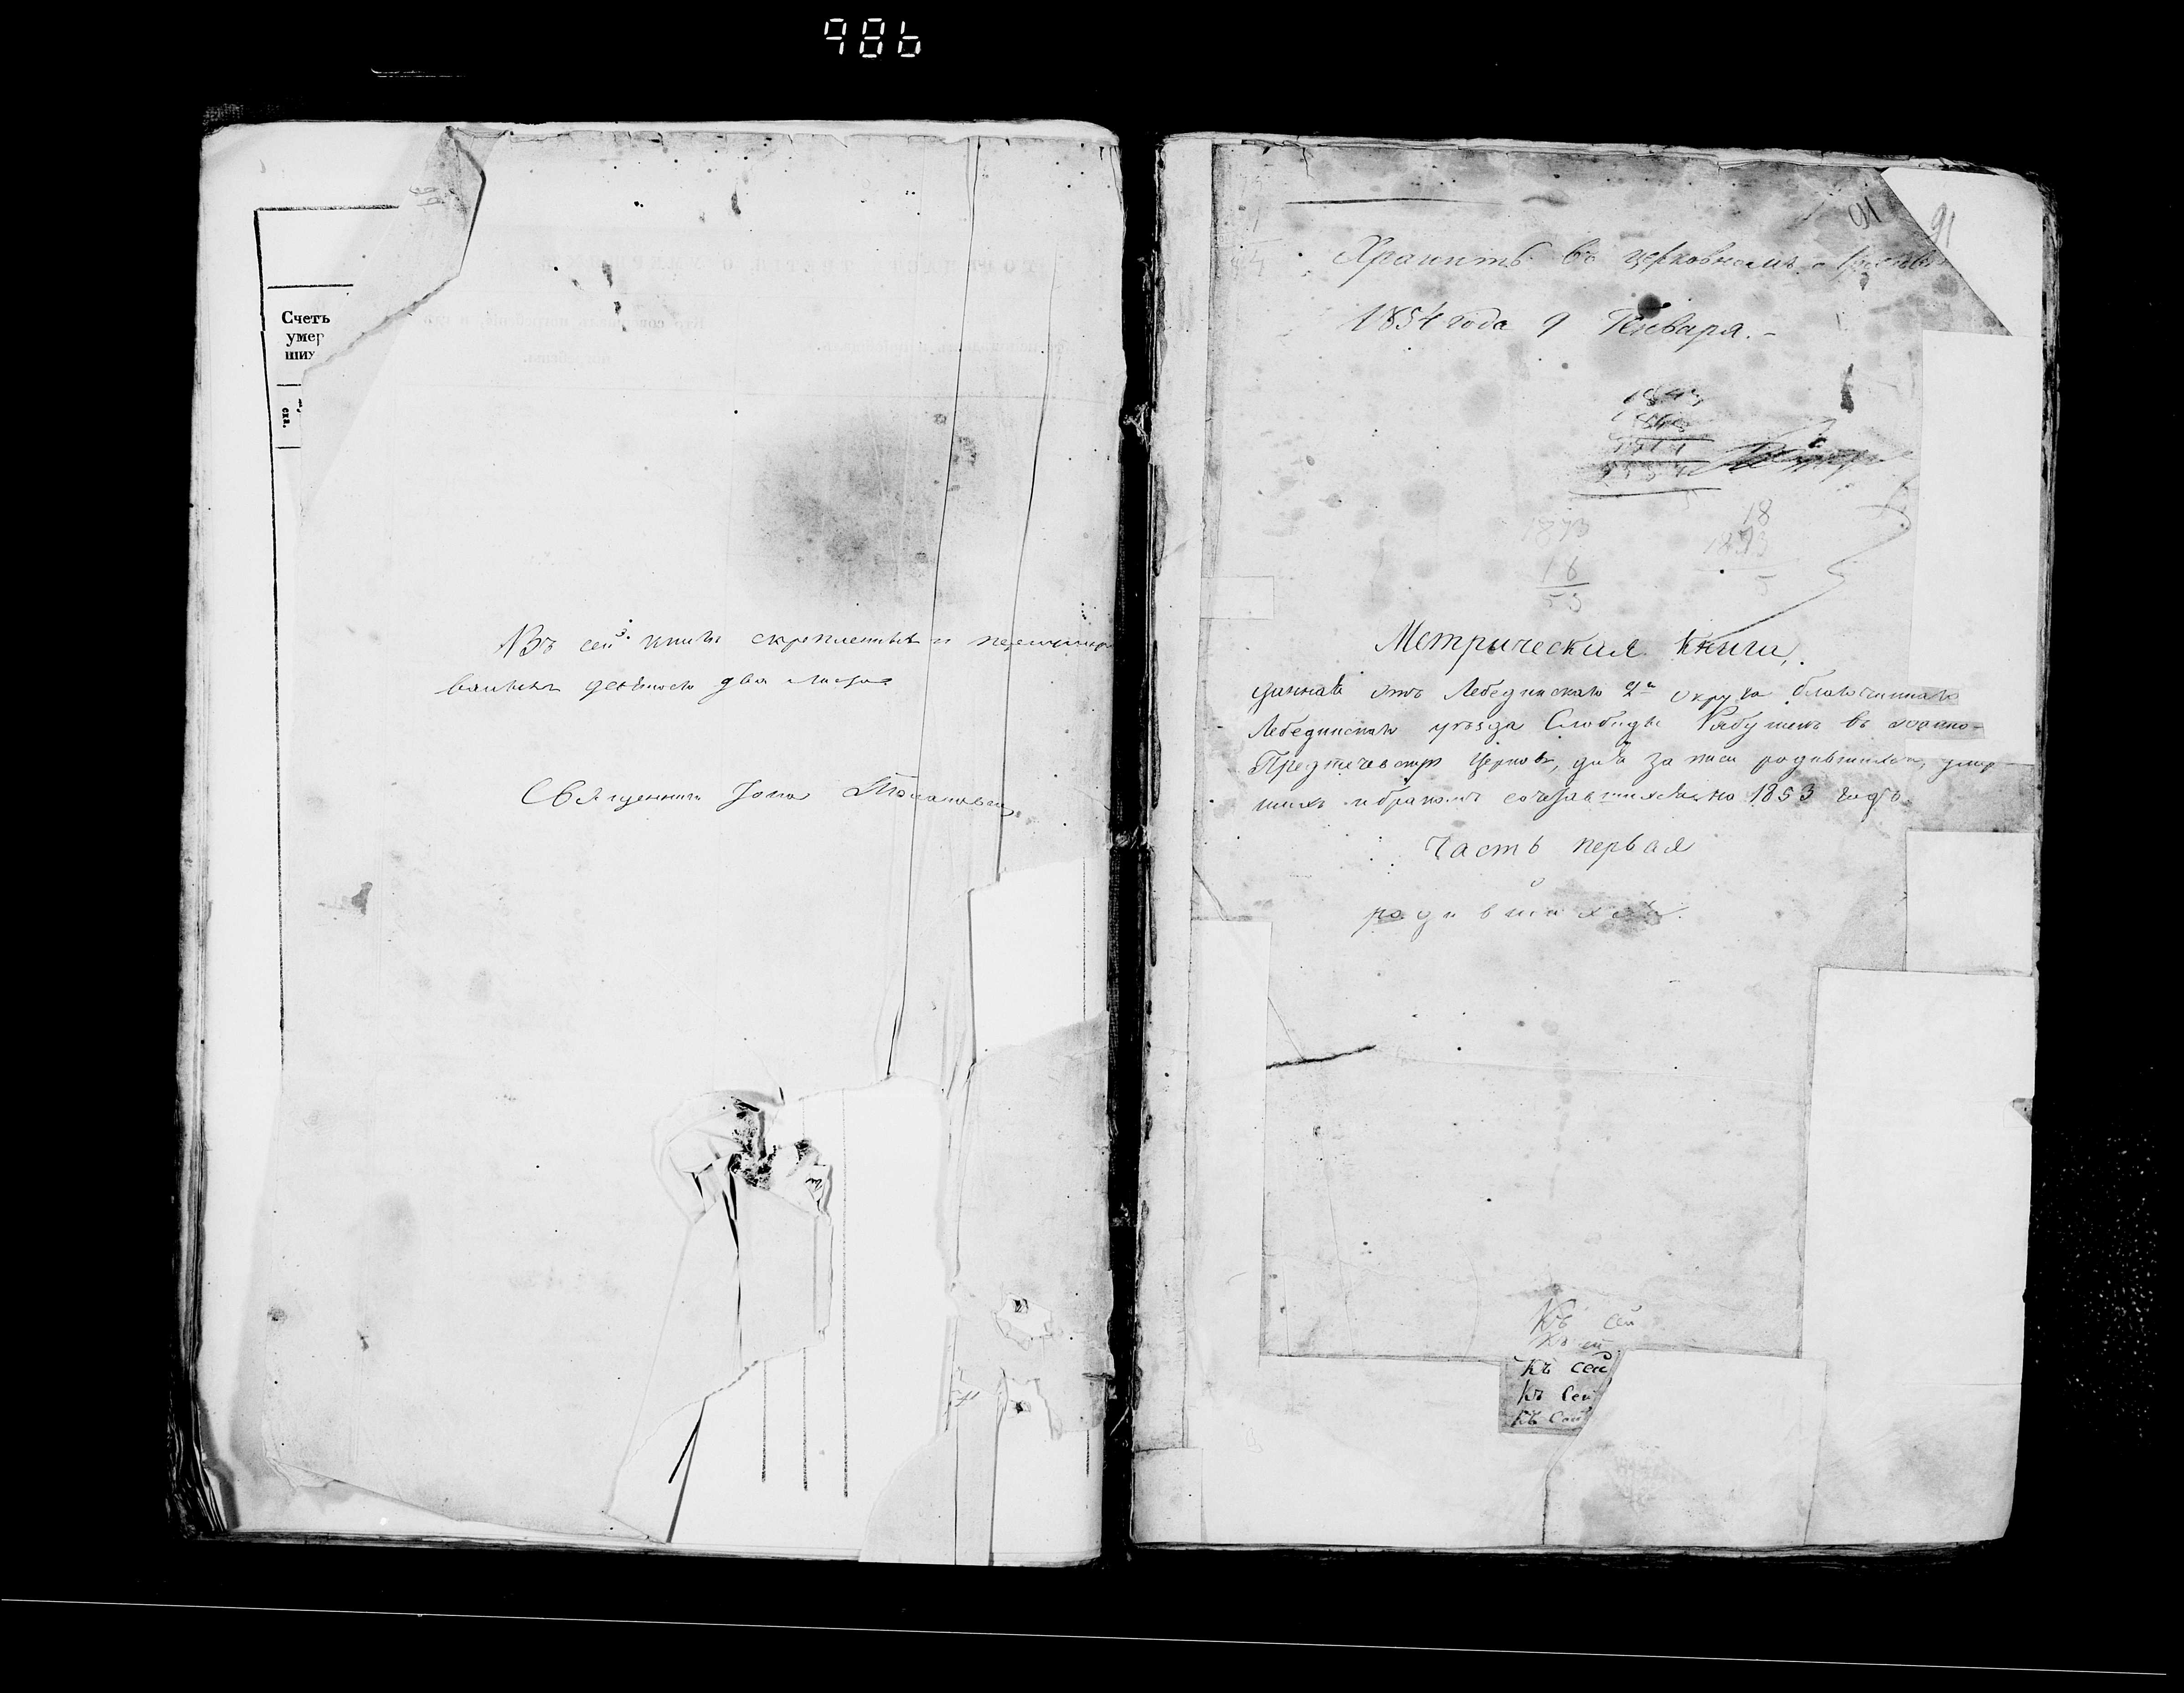 986
Счетъ
умер
ших
Въ сей книгѣ скрепленныхъ и перенумеро
ванныхъ девяносто два листа
Священникъ Іона
91
91
Хранить въ церковномъ Архивѣ
1854 года 9 Генваря.
1873
18
1873
16
53
5
Метрическая книга,
данная отъ Лебединскаго 2го округа благочиннаго
Лебединскаго уѣзда Слободы Рябушекъ въ Іоанно-
Предтечевскую Церковь, для записи родившихся, умер
шихъ и бракомъ сочетавшихся на 1853 годъ.
Часть первая
о
родившихся.
Къ сей
Къ сей
Къ сей
Къ Сей
Къ Сей